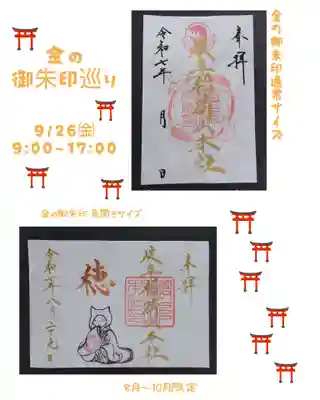 金の
御朱印巡り
9/26㊎
9:00~17:00
金の御朱印通常サイズ
奉拝
令和七年 月 日
金の御朱印 見開きサイズ
奉拝
岐阜稲荷本社
穂
8月~10月限定